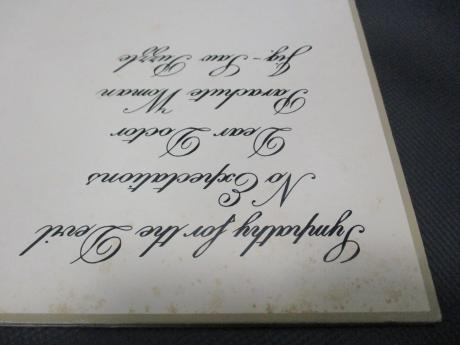 Sympathy for the Devil
No Expectations
Dear Doctor
Parachute Woman
Jig-Saw Puzzle